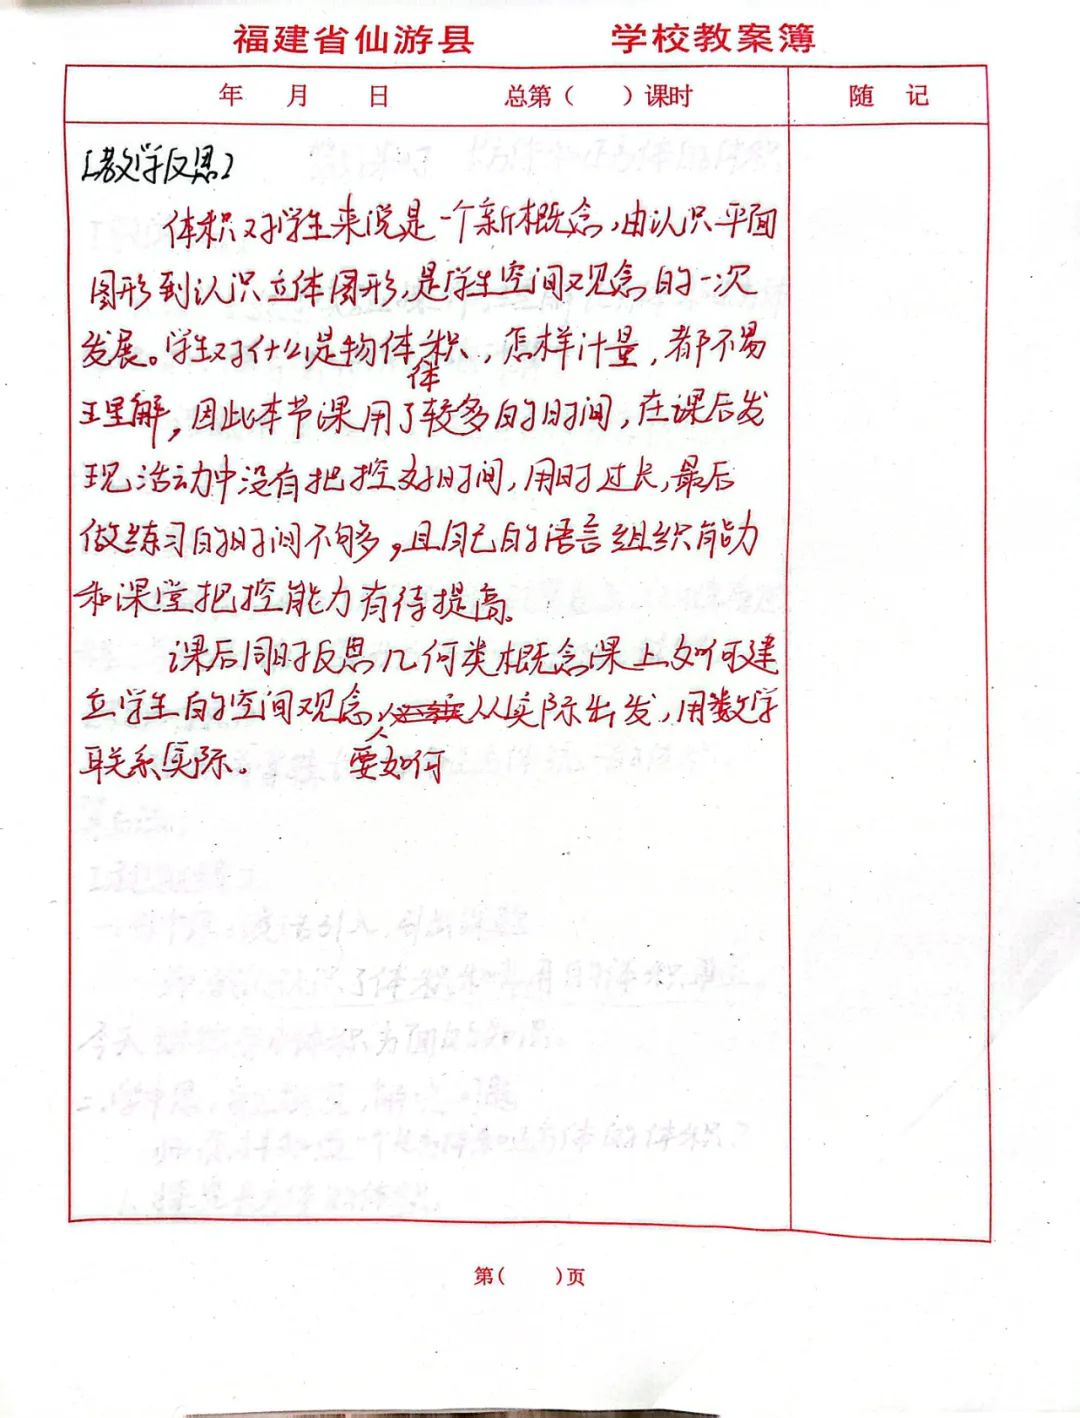 福建省仙游县 学校教案簿
年 月 日 总第( )课时 随 记
[教学反思]
体积对学生来说是一个新概念,由认识平面
图形到认识立体图形,是学生空间观念的一次
发展。学生对什么是物体体积,怎样计量,都不易
理解,因此本节课用了较多的时间,在课后发
现活动中没有把控好时间,用时过长,最后
做练习的时间不够多,且自己的语言组织能力
和课堂把控能力有待提高。
课后同时反思几何类概念课上如何建
立学生的空间观念,要如何从实际出发,用数学
联系实际。
第( )页